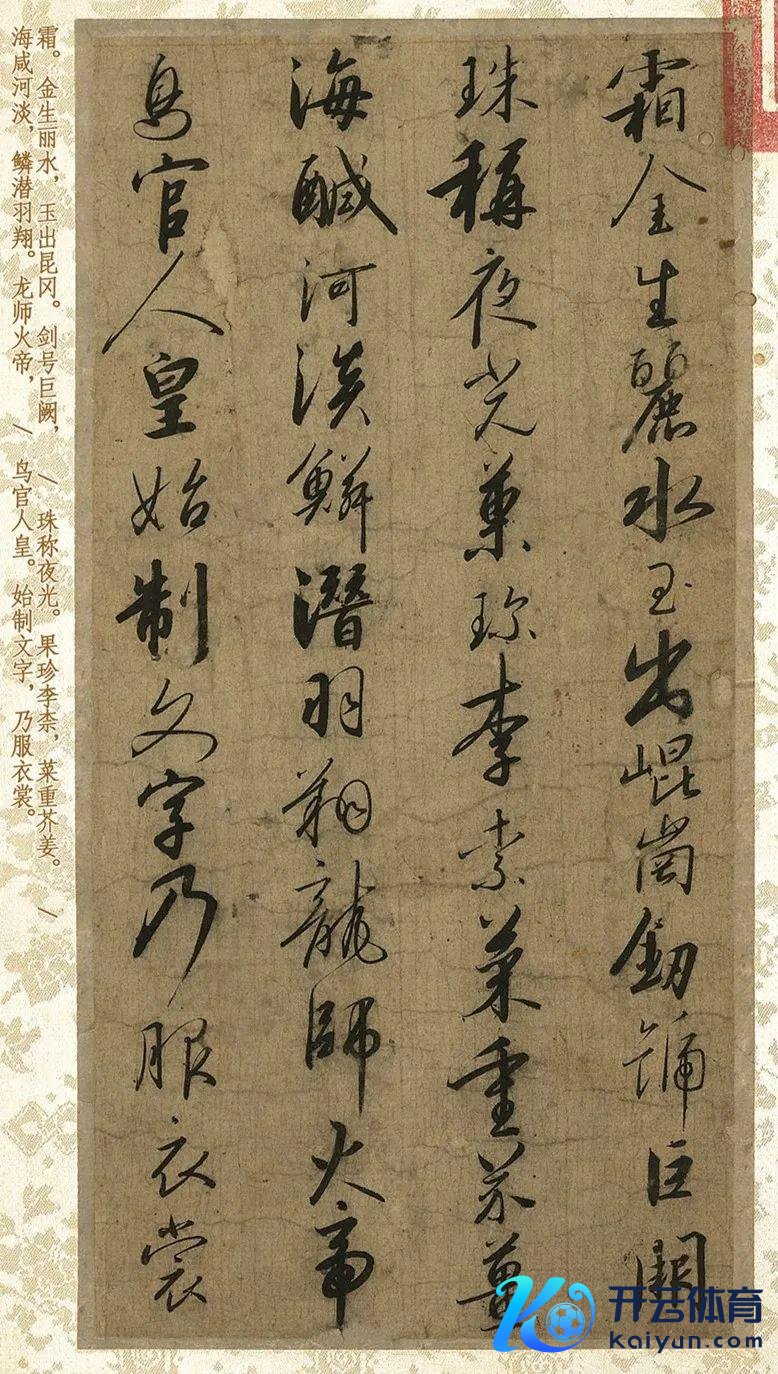 霜金生麗水玉出崐崗釼號巨闕
珠稱夜光菓珍李柰菜重芥薑
海醎河淡鱗潛羽翔龍師火帝
鳥官人皇始制文字乃服衣裳
霜。金生丽水，玉出昆冈。剑号巨阙，\珠称夜光。果珍李柰，菜重芥姜。\
海咸河淡，鳞潜羽翔。龙师火帝，\鸟官人皇。始制文字，乃服衣裳。
开云体育
kaiyun.com